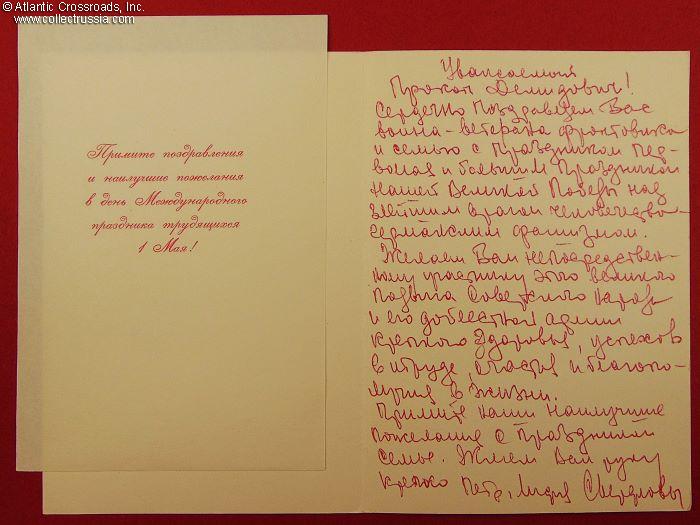 © Atlantic Crossroads, Inc.
www.collectrussia.com
Примите поздравления
и наилучшие пожелания
в день Международного
праздника трудящихся
1 Мая!
Уважаемый
Прокоп Демидович!
Сердечно поздравляем Вас
воина-ветерана фронтовика
и семью с праздником Пер-
вомая и большим праздником
нашей Великой Победы над
злейшим врагом человечества-
германским фашизмом.
Желаем Вам непосредствен-
ному участнику этого великого
подвига Советского народа
и его доблестной армии
крепкого здоровья, успехов
в труде, счастья и благопо-
лучия в жизни.
Примите наши наилучшие
пожелания с праздником
семье. Жмем Вам руку
крепко Петр, Свердловы